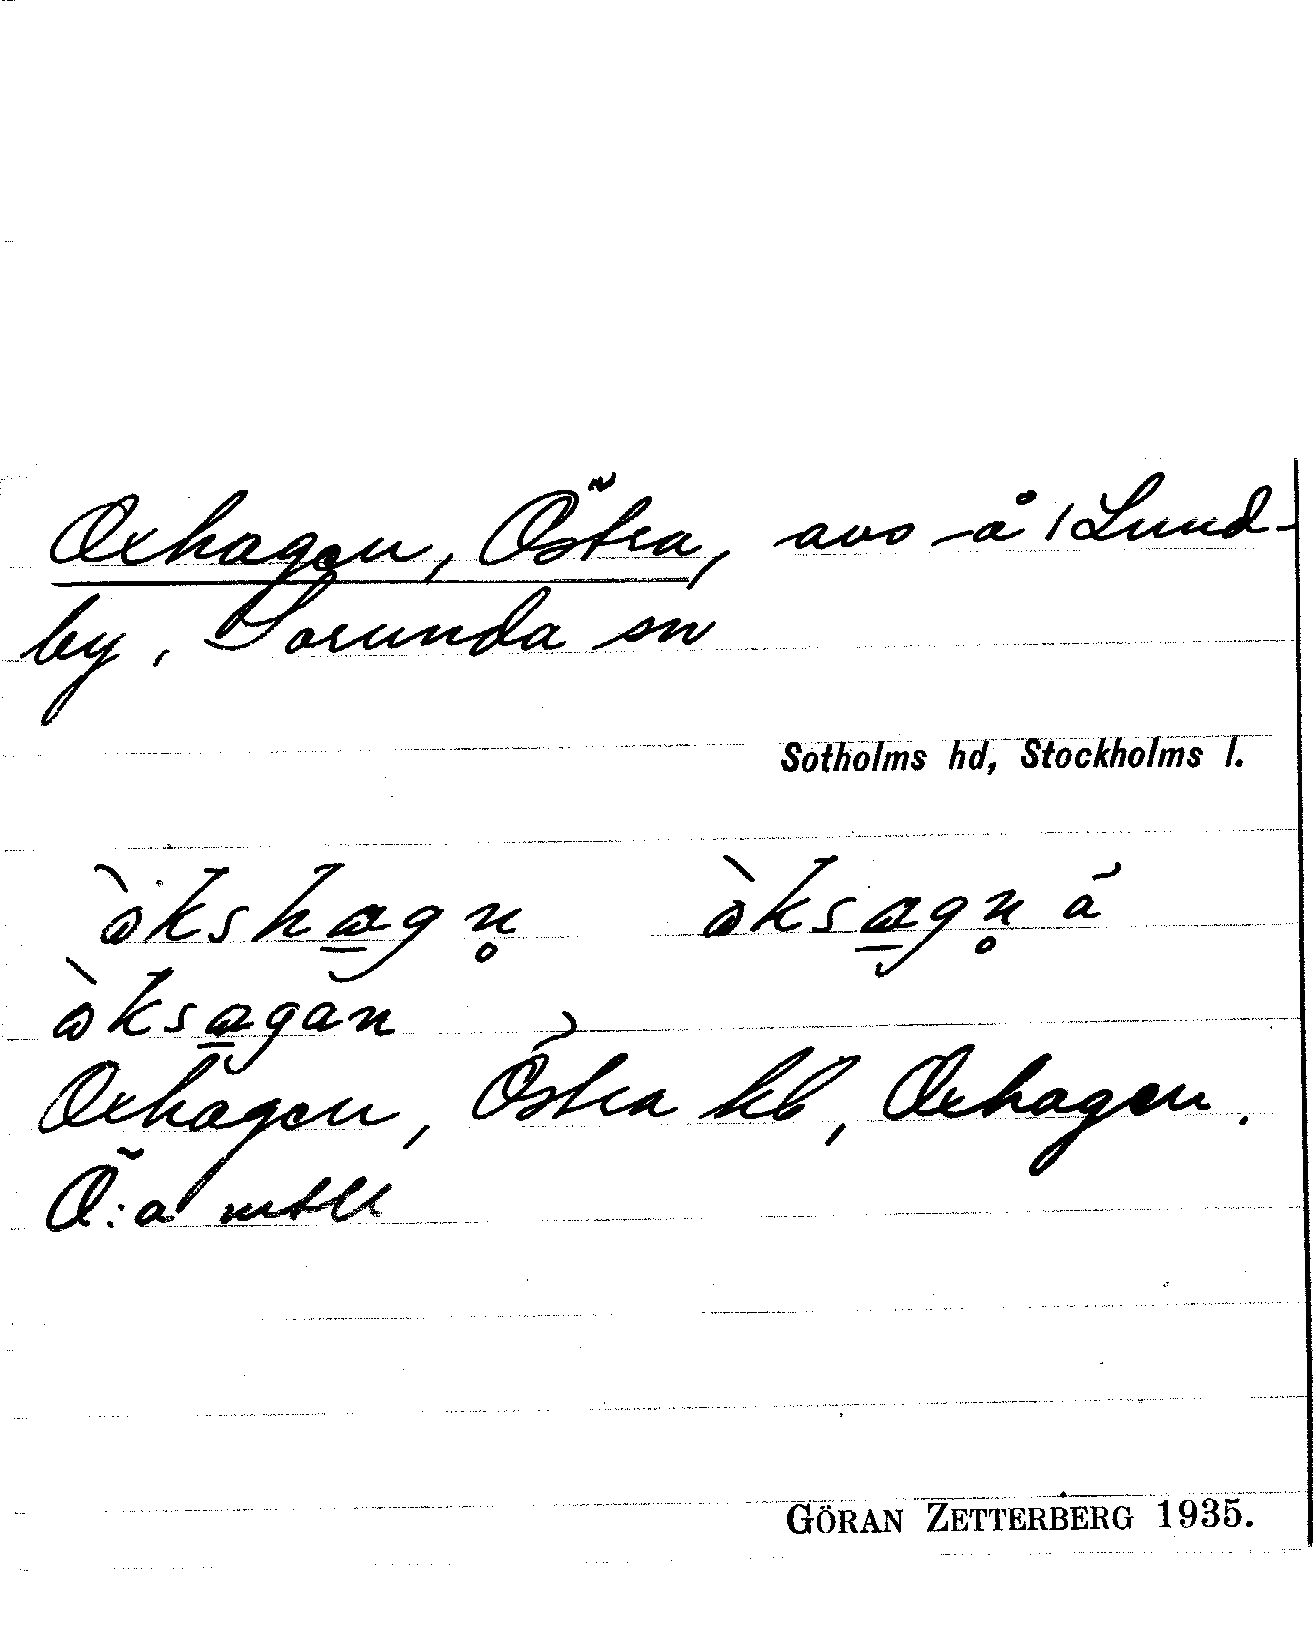 Oxhagen, Östra, avs -å / Lund-
by, Sorunda sn
Sotholms hd, Stockholms l.
òkshagn̥ òksagn̥ á
òksagan
Oxhagen, Östra hb, Oxhagen.
Ö:a mtll
GÖRAN ZETTERBERG 1935.